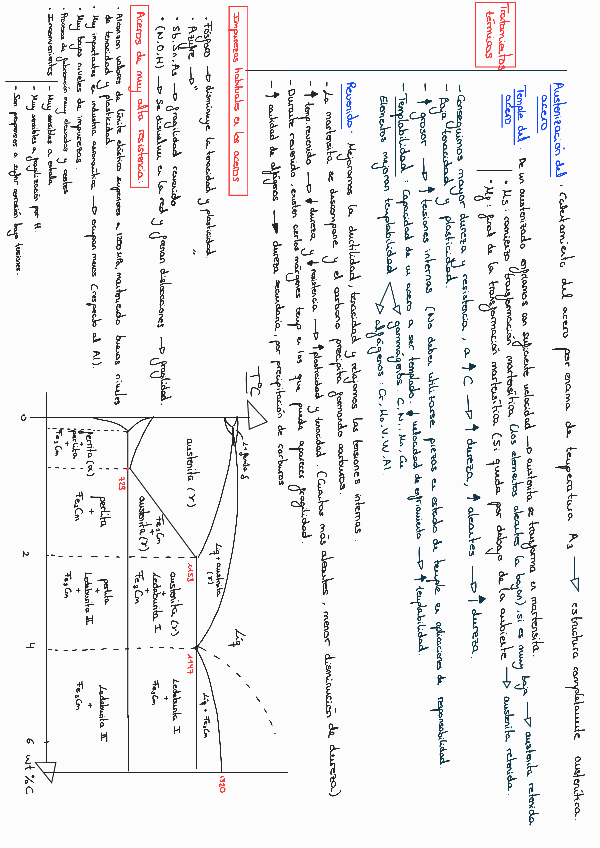 Tratamientos
térmicos
Austenización del
acero
· Calentamiento del acero por encima de temperatura A3 → estructura completamente austenítica.
Temple del
acero
· De un austenizado enfriamos con suficiente velocidad → austenita se transforma en martensita.
• Ms: comienzo transformación martensítica (los elementos aleantes la bajan). Si es muy baja → austenita retenida.
• Mf: final de la transformación martensítica (Si queda por debajo de la ambiente → austenita retenida.
- Conseguimos mayor dureza y resistencia, a ↑ C → ↑ dureza, ↑ aleantes → ↑ dureza.
- Baja tenacidad y plasticidad.
- ↑ grosor → ↑ tensiones internas (No deben utilizarse piezas en estado de temple en aplicaciones de responsabilidad
- Templabilidad: Capacidad de un acero a ser templado. ↓ velocidad de enfriamiento → ↑ templabilidad
Elementos mejoran templabilidad
gammágenos C, Ni, Mn, Cu
alfágenos: Cr, Mo, V, W, Al
Revenido: Mejoramos la ductilidad, tenacidad y relajamos las tensiones internas.
- La martensita se descompone y el carbono precipita formando carburos.
- ↑ temp. revenido → ↓ dureza y ↓ resistencia → ↑ plasticidad y tenacidad. (Cuantos más aleantes, menor disminución de dureza)
- Durante revenido, existen ciertos márgenes temp en los que puede aparecer fragilidad.
- ↑ cantidad de alfágenos → dureza secundaria, por precipitación de carburos
Impurezas habituales en los aceros
• Fósforo → disminuye la tenacidad y plasticidad
• Azufre → " "
• Sb, Sn, As → fragilidad revenido
• (N, O, H) → Se disuelven en la red y frenan dislocaciones → fragilidad.
Aceros de muy alta resistencia:
• Alcanzan valores de límite elástico superiores a 1200 MPa, manteniendo buenos niveles
de tenacidad y plasticidad
• Muy importantes en industria aeronáutica → ocupan menos (respecto al Al).
• Muy bajos niveles de impurezas.
• Proceso de fabricación muy elaborados y costes
• Inconvenientes
- Muy sensibles a entalla
- Muy sensibles a fragilización por H
- Son propensos a sufrir corrosión bajo tensiones.
T°C
Liq
Liquido δ
Liq + austenita
(γ)
Liq + Fe3Cm
austenita (γ)
1153
1147
1320
Fe3Cm
+
austenita (γ)
austenita (γ)
+
Ledeburita I
+
Fe3Cm
Ledeburita I
+
Fe3Cm
723
ferrita (α)
+
perlita
+
Fe3Cm
perlita
+
Fe3Cm
perlita
+
Ledeburita II
+
Fe3Cm
Ledeburita II
+
Fe3Cm
0 2 4 6 wt%C